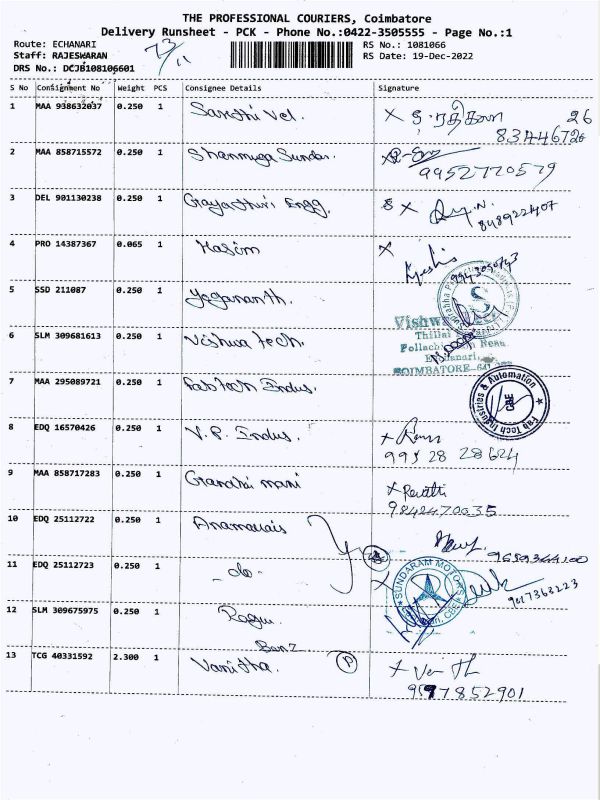 THE PROFESSIONAL COURIERS, Coimbatore
Delivery Runsheet - PCK - Phone No.:0422-3505555 - Page No.:1
Route: ECHANARI
RS No.: 1081066
Staff: RAJESWARAN
RS Date: 19-Dec-2022
DRS No.: DCJB108106601
73/11
S No Consignment No Weight PCS Consignee Details Signature
1 MAA 938632037 0.250 1 Sarathi Vel. X சு.ரதிகலா 26
2 MAA 858715572 0.250 1 Shanmuga Sundar. 9952770579
3 DEL 901130238 0.250 1 Gayathiri Engg. X 8489222407
4 PRO 14387367 0.065 1 Hasim X
5 SSD 211087 0.250 1 Yogananth. S
6 SLM 309681613 0.250 1 Vishwa Tech.
Pollachi
COIMBATORE
7 MAA 295089721 0.250 1 Fab Tech Indus. Fab Tech Industries & Automation CBE
8 EDQ 16570426 0.250 1 V.P. Indus. X
99528 28624
9 MAA 858717283 0.250 1 Gandhi mani X Revathi
9842470035
10 EDQ 25112722 0.250 1 Anamalais 9659364100
11 EDQ 25112723 0.250 1 - do - X SUNDARAM MOTORS CBE
12 SLM 309675975 0.250 1 Ragu
Banz
13 TCG 40331592 2.300 1 Vanitha. P X